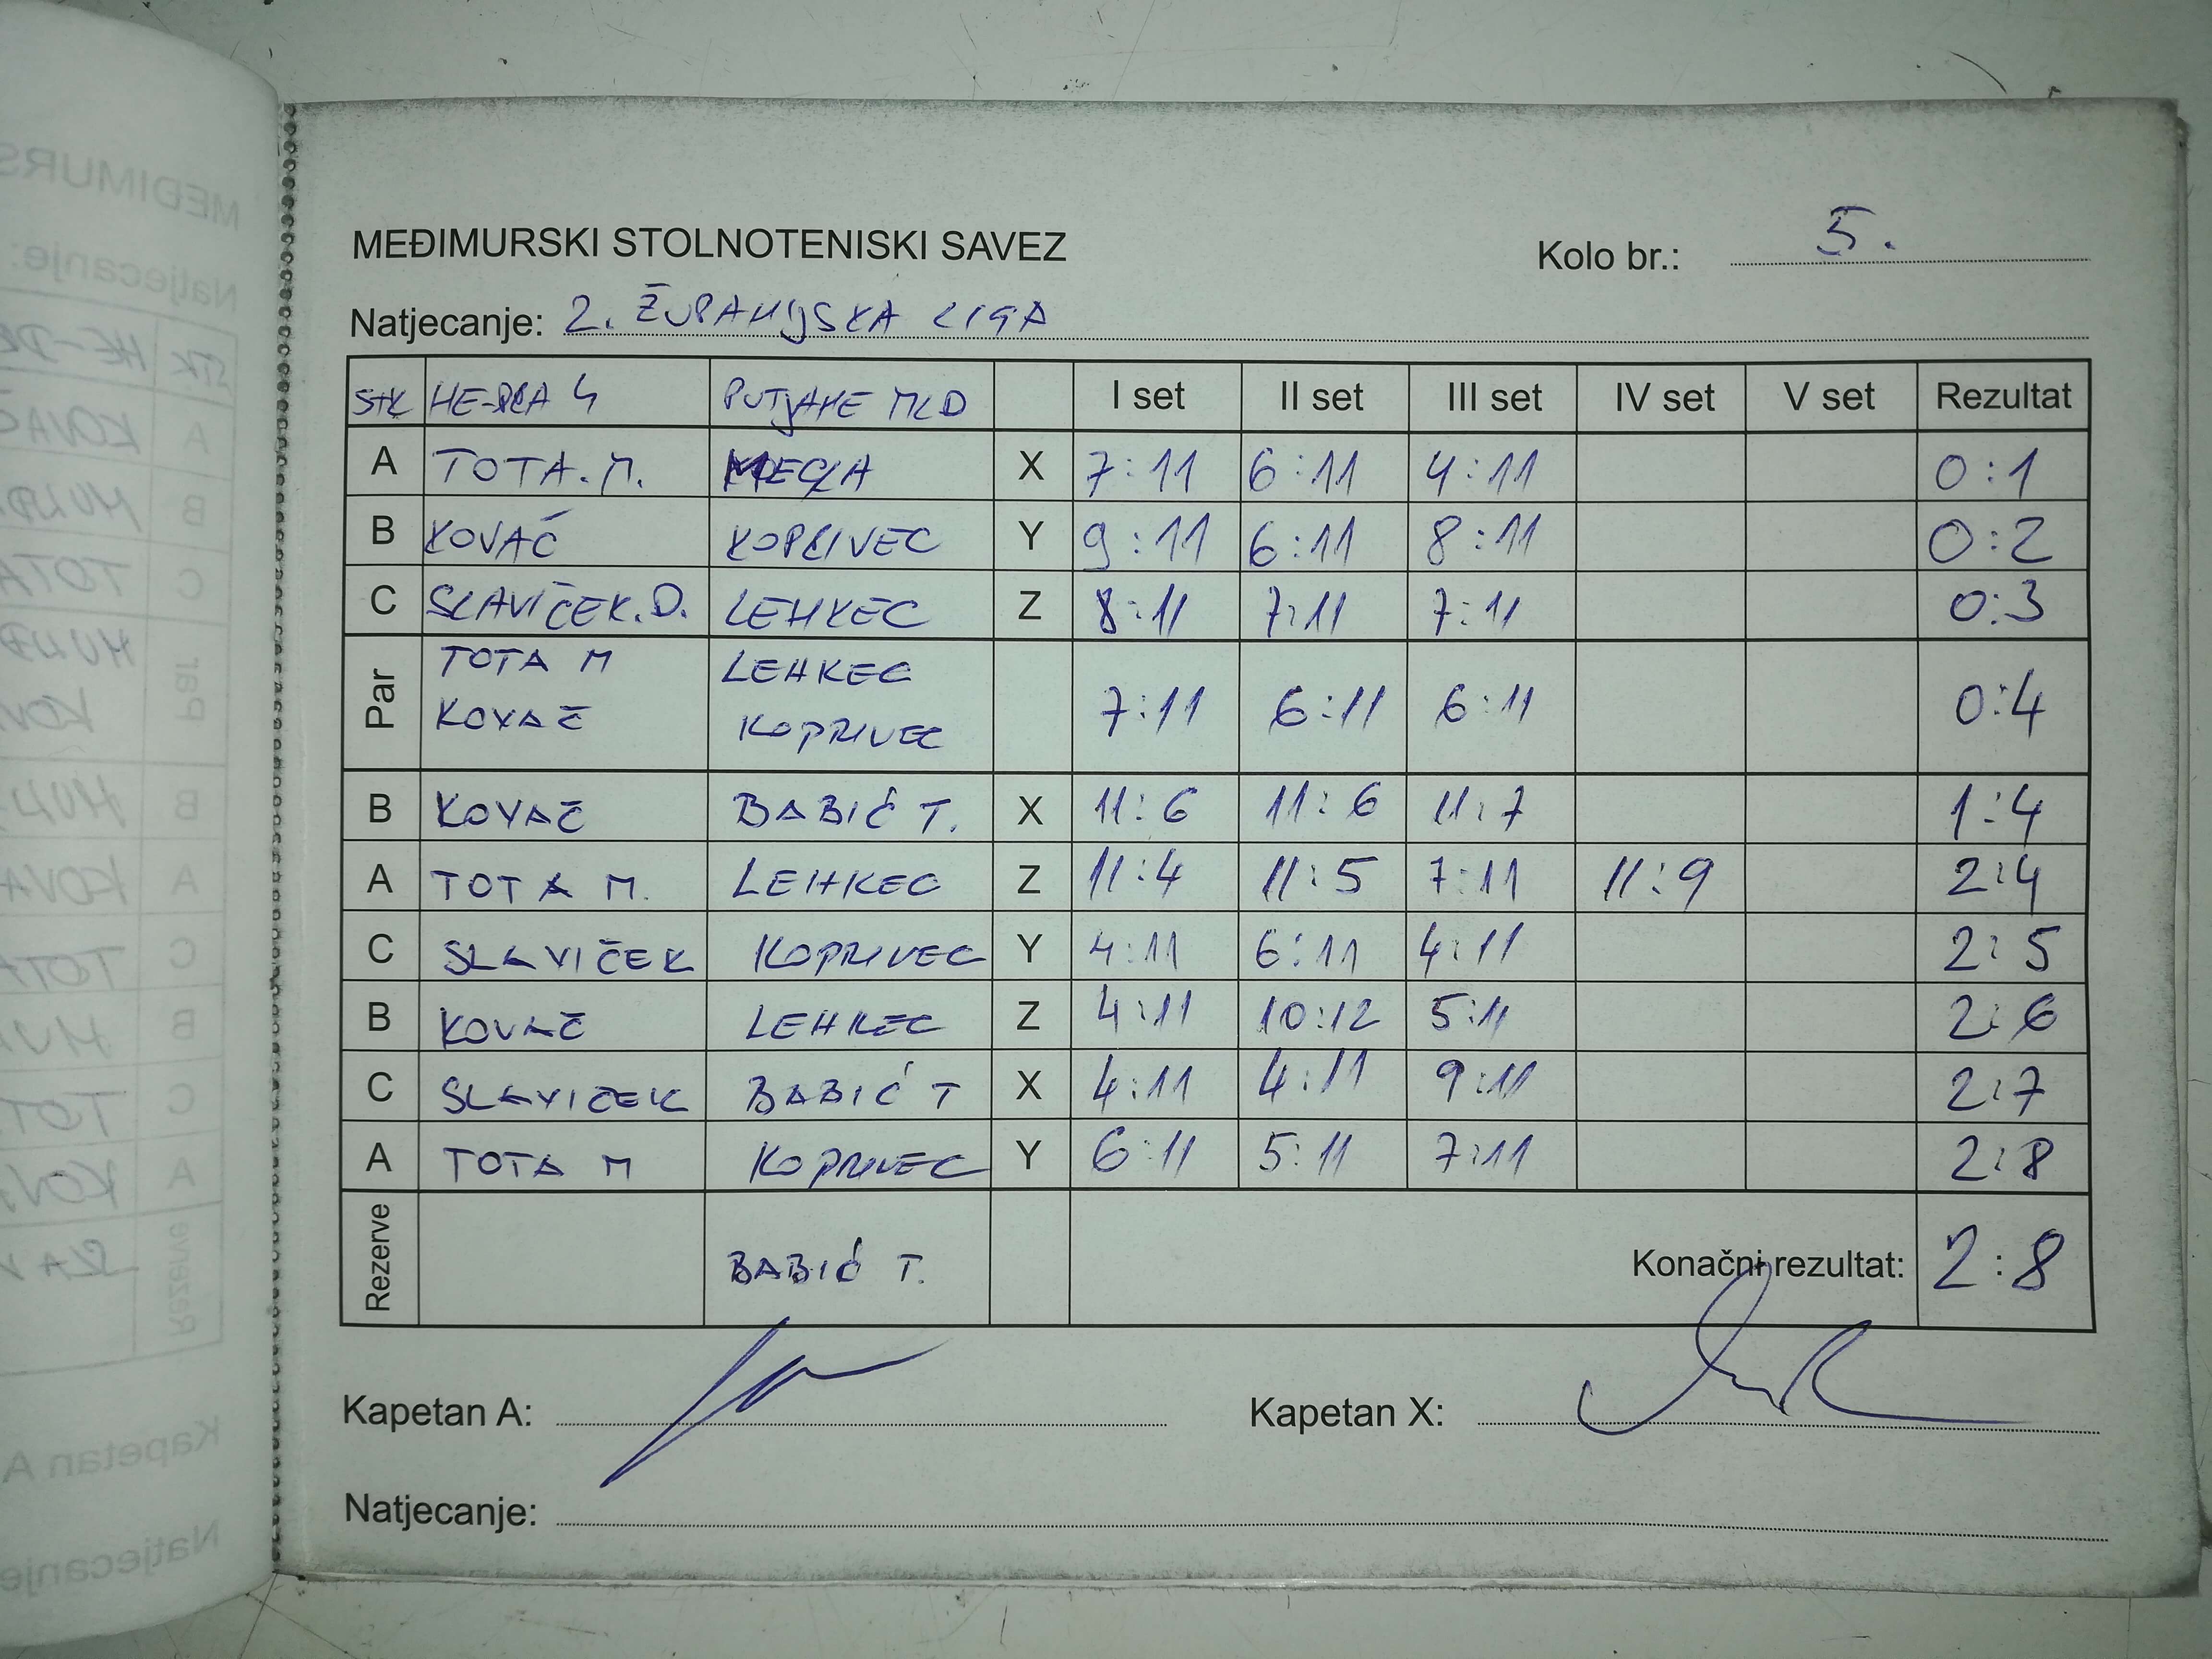 MEĐIMURSKI STOLNOTENISKI SAVEZ Kolo br.: 5.
Natjecanje: 2. ŽUPANIJSKA LIGA
STK HE-DEA 4 PUTJANE MLD I set II set III set IV set V set Rezultat
A TOTA. M. X 7:11 6:11 4:11 0:1
B KOVAČ KOPRIVEC Y 9:11 6:11 8:11 0:2
C SLAVIČEK. D. LEHKEC Z 8:11 7:11 7:11 0:3
Par TOTA M LEHKEC 7:11 6:11 6:11 0:4
KOVAČ KOPRIVEC
B KOVAČ BABIĆ T. X 11:6 11:6 11:7 1:4
A TOTA M. LEHKEC Z 11:4 11:5 7:11 11:9 2:4
C SLAVIČEK KOPRIVEC Y 4:11 6:11 4:11 2:5
B KOVAČ LEHKEC Z 4:11 10:12 5:11 2:6
C SLAVIČEK BABIĆ T X 4:11 4:11 9:11 2:7
A TOTA M KOPRIVEC Y 6:11 5:11 7:11 2:8
Rezerve BABIĆ T. Konačni rezultat: 2:8
Kapetan A: Kapetan X:
Natjecanje: